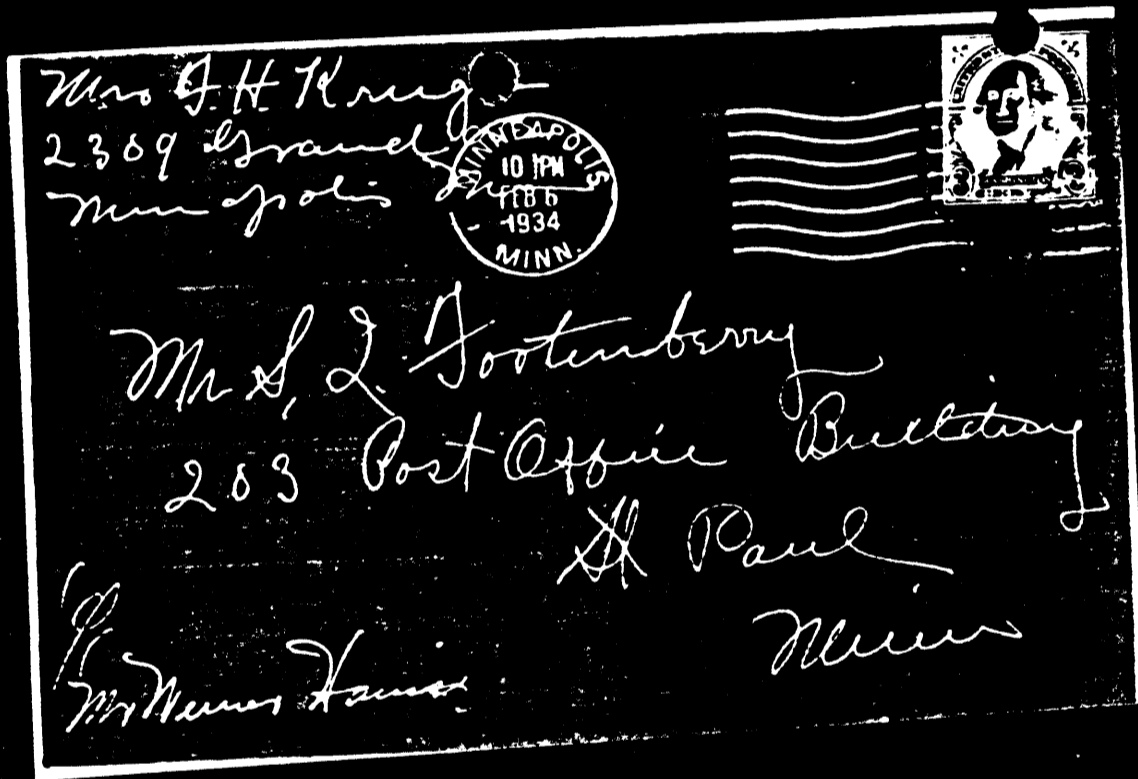 Mrs F. H Krug
2309 Grand
Minneapolis
MINNEAPOLIS
10 PM
FEB 6
1934
MINN.
3 3
Mr S, Q. Footenberry
203 Post Office Building
St Paul
Minn
Mr Werner